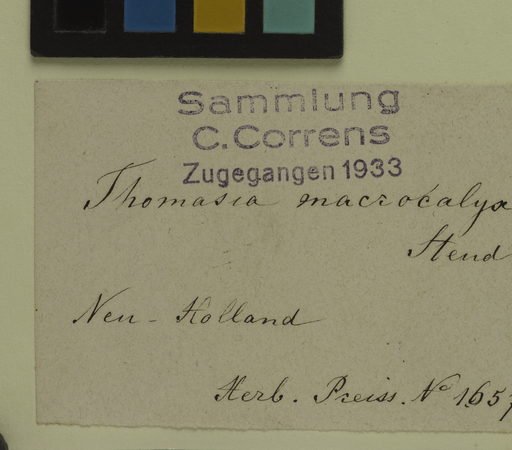 Sammlung
C. Correns
Zugegangen 1933
Thomasia macrocalyx
Steud
Neu-Holland
Herb. Preiss. No 1657